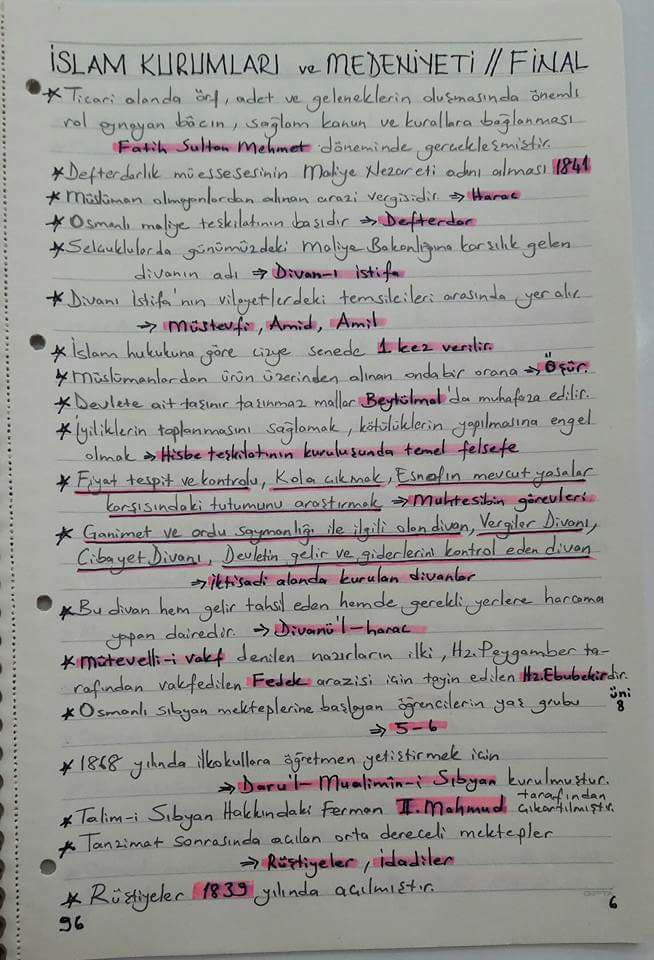 İSLAM KURUMLARI ve MEDENİYETİ // FİNAL
* Ticari alanda örf, adet ve geleneklerin oluşmasında önemli
rol oynayan bâcın, sağlam kanun ve kurallara bağlanması
Fatih Sultan Mehmet döneminde gerçekleşmiştir.
* Defterdarlık müessesesinin Maliye Nezareti adını alması 1841
* Müslüman olmayanlardan alınan arazi vergisidir. ⇒ Harac
* Osmanlı maliye teşkilatının başıdır ⇒ Defterdar
* Selçuklularda günümüzdeki Maliye Bakanlığına karşılık gelen
divanın adı ⇒ Divan-ı istifa
* Divanı İstifa'nın vilayetlerdeki temsilcileri arasında yer alır.
⇒ Müstevfi, Amid, Amil
* İslam hukukuna göre cizye senede 1 kez verilir.
* Müslümanlardan ürün üzerinden alınan onda bir orana ⇒ Öşür.
* Devlete ait taşınır taşınmaz mallar Beytülmal'da muhafaza edilir.
* İyiliklerin toplanmasını sağlamak, kötülüklerin yapılmasına engel
olmak ⇒ Hisbe teşkilatının kuruluşunda temel felsefe
* Fiyat tespit ve kontrolu, Kola çıkmak, Esnafın mevcut yasalar
karşısındaki tutumunu araştırmak ⇒ Muhtesibin görevleri
* Ganimet ve ordu saymanlığı ile ilgili olan divan, Vergiler Divanı,
Cibayet Divanı, Devletin gelir ve giderlerini kontrol eden divan
⇒ İktisadi alanda kurulan divanlar
* Bu divan hem gelir tahsil eden hemde gerekli yerlere harcama
yapan dairedir. ⇒ Divanü'l-harac
* Mütevelli-i vakf denilen nazırların ilki, Hz. Peygamber ta-
rafından vakfedilen Fedek arazisi için tayin edilen Hz. Ebubekir'dir.
* Osmanlı sıbyan mekteplerine başlayan öğrencilerin yaş grubu
⇒ 5-6
üni
8
* 1868 yılında ilkokullara öğretmen yetiştirmek için
⇒ Daru'l-Mualimîn-i Sıbyan kurulmuştur.
* Talim-i Sıbyan Hakkındaki Ferman II. Mahmud tarafından çıkartılmıştır.
* Tanzimat sonrasında açılan orta dereceli mektepler
⇒ Rüştiyeler, idadiler
* Rüştiyeler 1839 yılında açılmıştır.
96
6